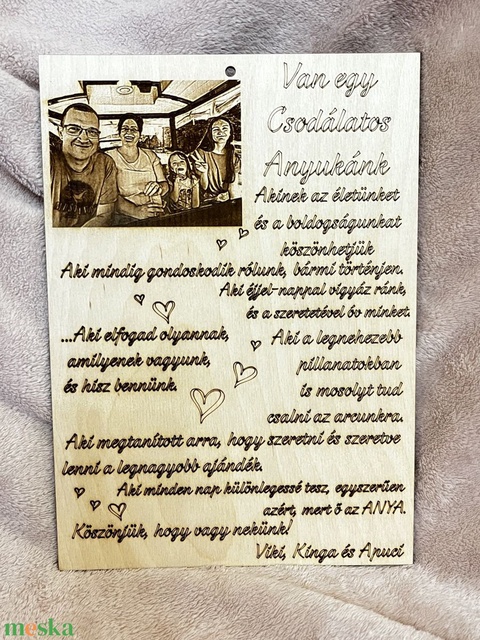 Van egy
Csodálatos
Anyukánk
Akinek az életünket
és a boldogságunkat
köszönhetjük
Aki mindig gondoskodik rólunk, bármi történjen.
Aki éjjel-nappal vigyáz ránk,
és a szeretetével óv minket.
...Aki elfogad olyannak,
amilyenek vagyunk,
és hisz bennünk.
Aki a legnehezebb
pillanatokban
is mosolyt tud
csalni az arcunkra.
Aki megtanított arra, hogy szeretni és szeretve
lenni a legnagyobb ajándék.
Aki minden nap különlegessé tesz, egyszerűen
azért, mert ő az ANYA.
Köszönjük, hogy vagy nekünk!
Viki, Kinga és Apuci
meska